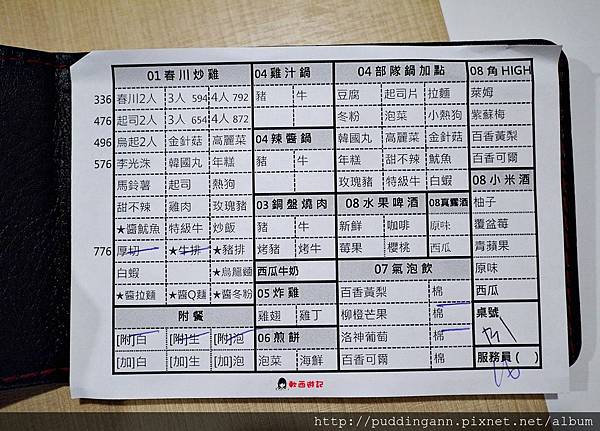 01 春川炒雞
336 春川2人 3人 594 4人 792
476 起司2人 3人 654 4人 872
496 烏起2人 金針菇 高麗菜
576 李光洙 韓國丸 年糕
馬鈴薯 起司 熱狗
甜不辣 雞肉 玫瑰豬
★醬魷魚 特級牛 炒飯
776 厚切 ★牛排 ★豬排
白蝦 ★烏龍麵
★醬拉麵 ★醬Q麵 ★醬冬粉
附餐
[附]白 [附]生 [附]泡
[加]白 [加]生 [加]泡
04 雞汁鍋
豬 牛
04 辣醬鍋
豬 牛
03 銅盤燒肉
豬 牛
烤豬 烤牛
西瓜牛奶
05 炸雞
雞翅 雞丁
06 煎餅
泡菜 海鮮
04 部隊鍋加點
豆腐 起司片 拉麵
冬粉 泡菜 小熱狗
韓國丸 高麗菜 金針菇
年糕 甜不辣 魷魚
玫瑰豬 特級牛 白蝦
08 水果啤酒 08真露酒
新鮮 咖啡 原味
莓果 櫻桃 西瓜
07 氣泡飲
百香黃梨 棉
柳橙芒果 棉
洛神葡萄 棉
百香可爾 棉
08 角HIGH
萊姆
紫蘇梅
百香黃梨
百香可爾
08 小米酒
柚子
覆盆莓
青蘋果
原味
西瓜
桌號
服務員 ( )
軟西遊記
http://puddingann.pixnet.net/album